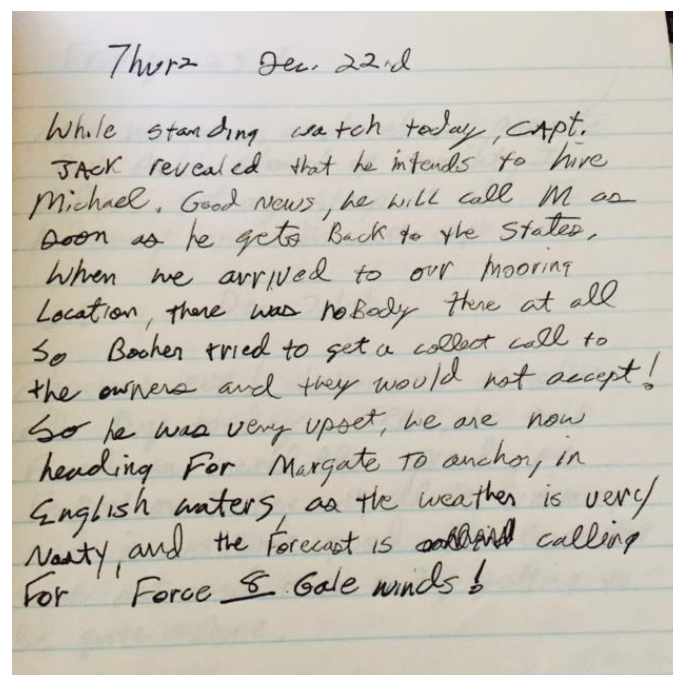 Thurs Dec. 22nd
While standing watch today, CAPT.
JACK revealed that he intends to hire
Michael. Good News, he will call M as
soon as he gets Back to the States.
When we arrived to our Mooring
Location, there was noBody there at all
So Booher tried to get a collect call to
the owners and they would not accept!
So he was very upset, we are now
heading For Margate To anchor, in
English waters, as the weather is very
Nasty, and the Forecast is calling
For Force 8 Gale winds!